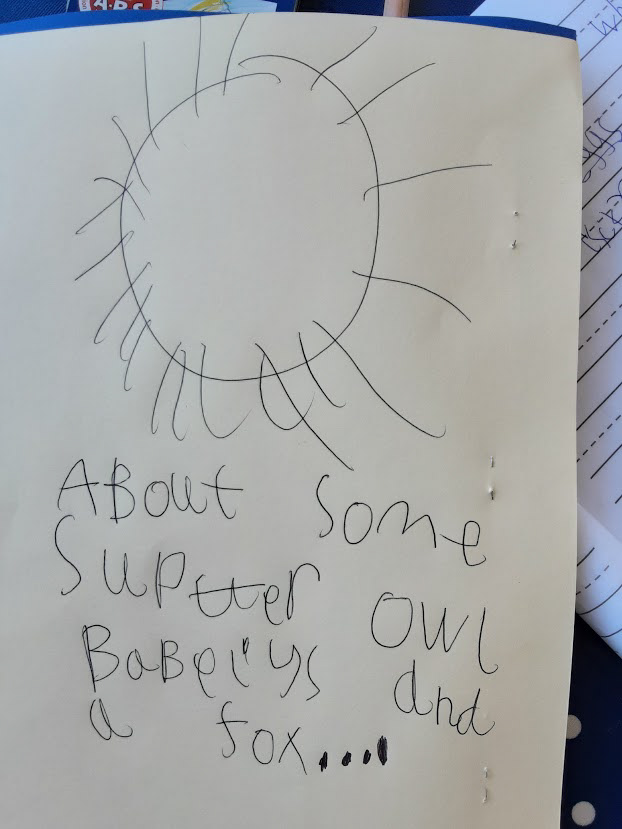 ABC
ABout some
Suptter owl
BaBeiys and
a fox....